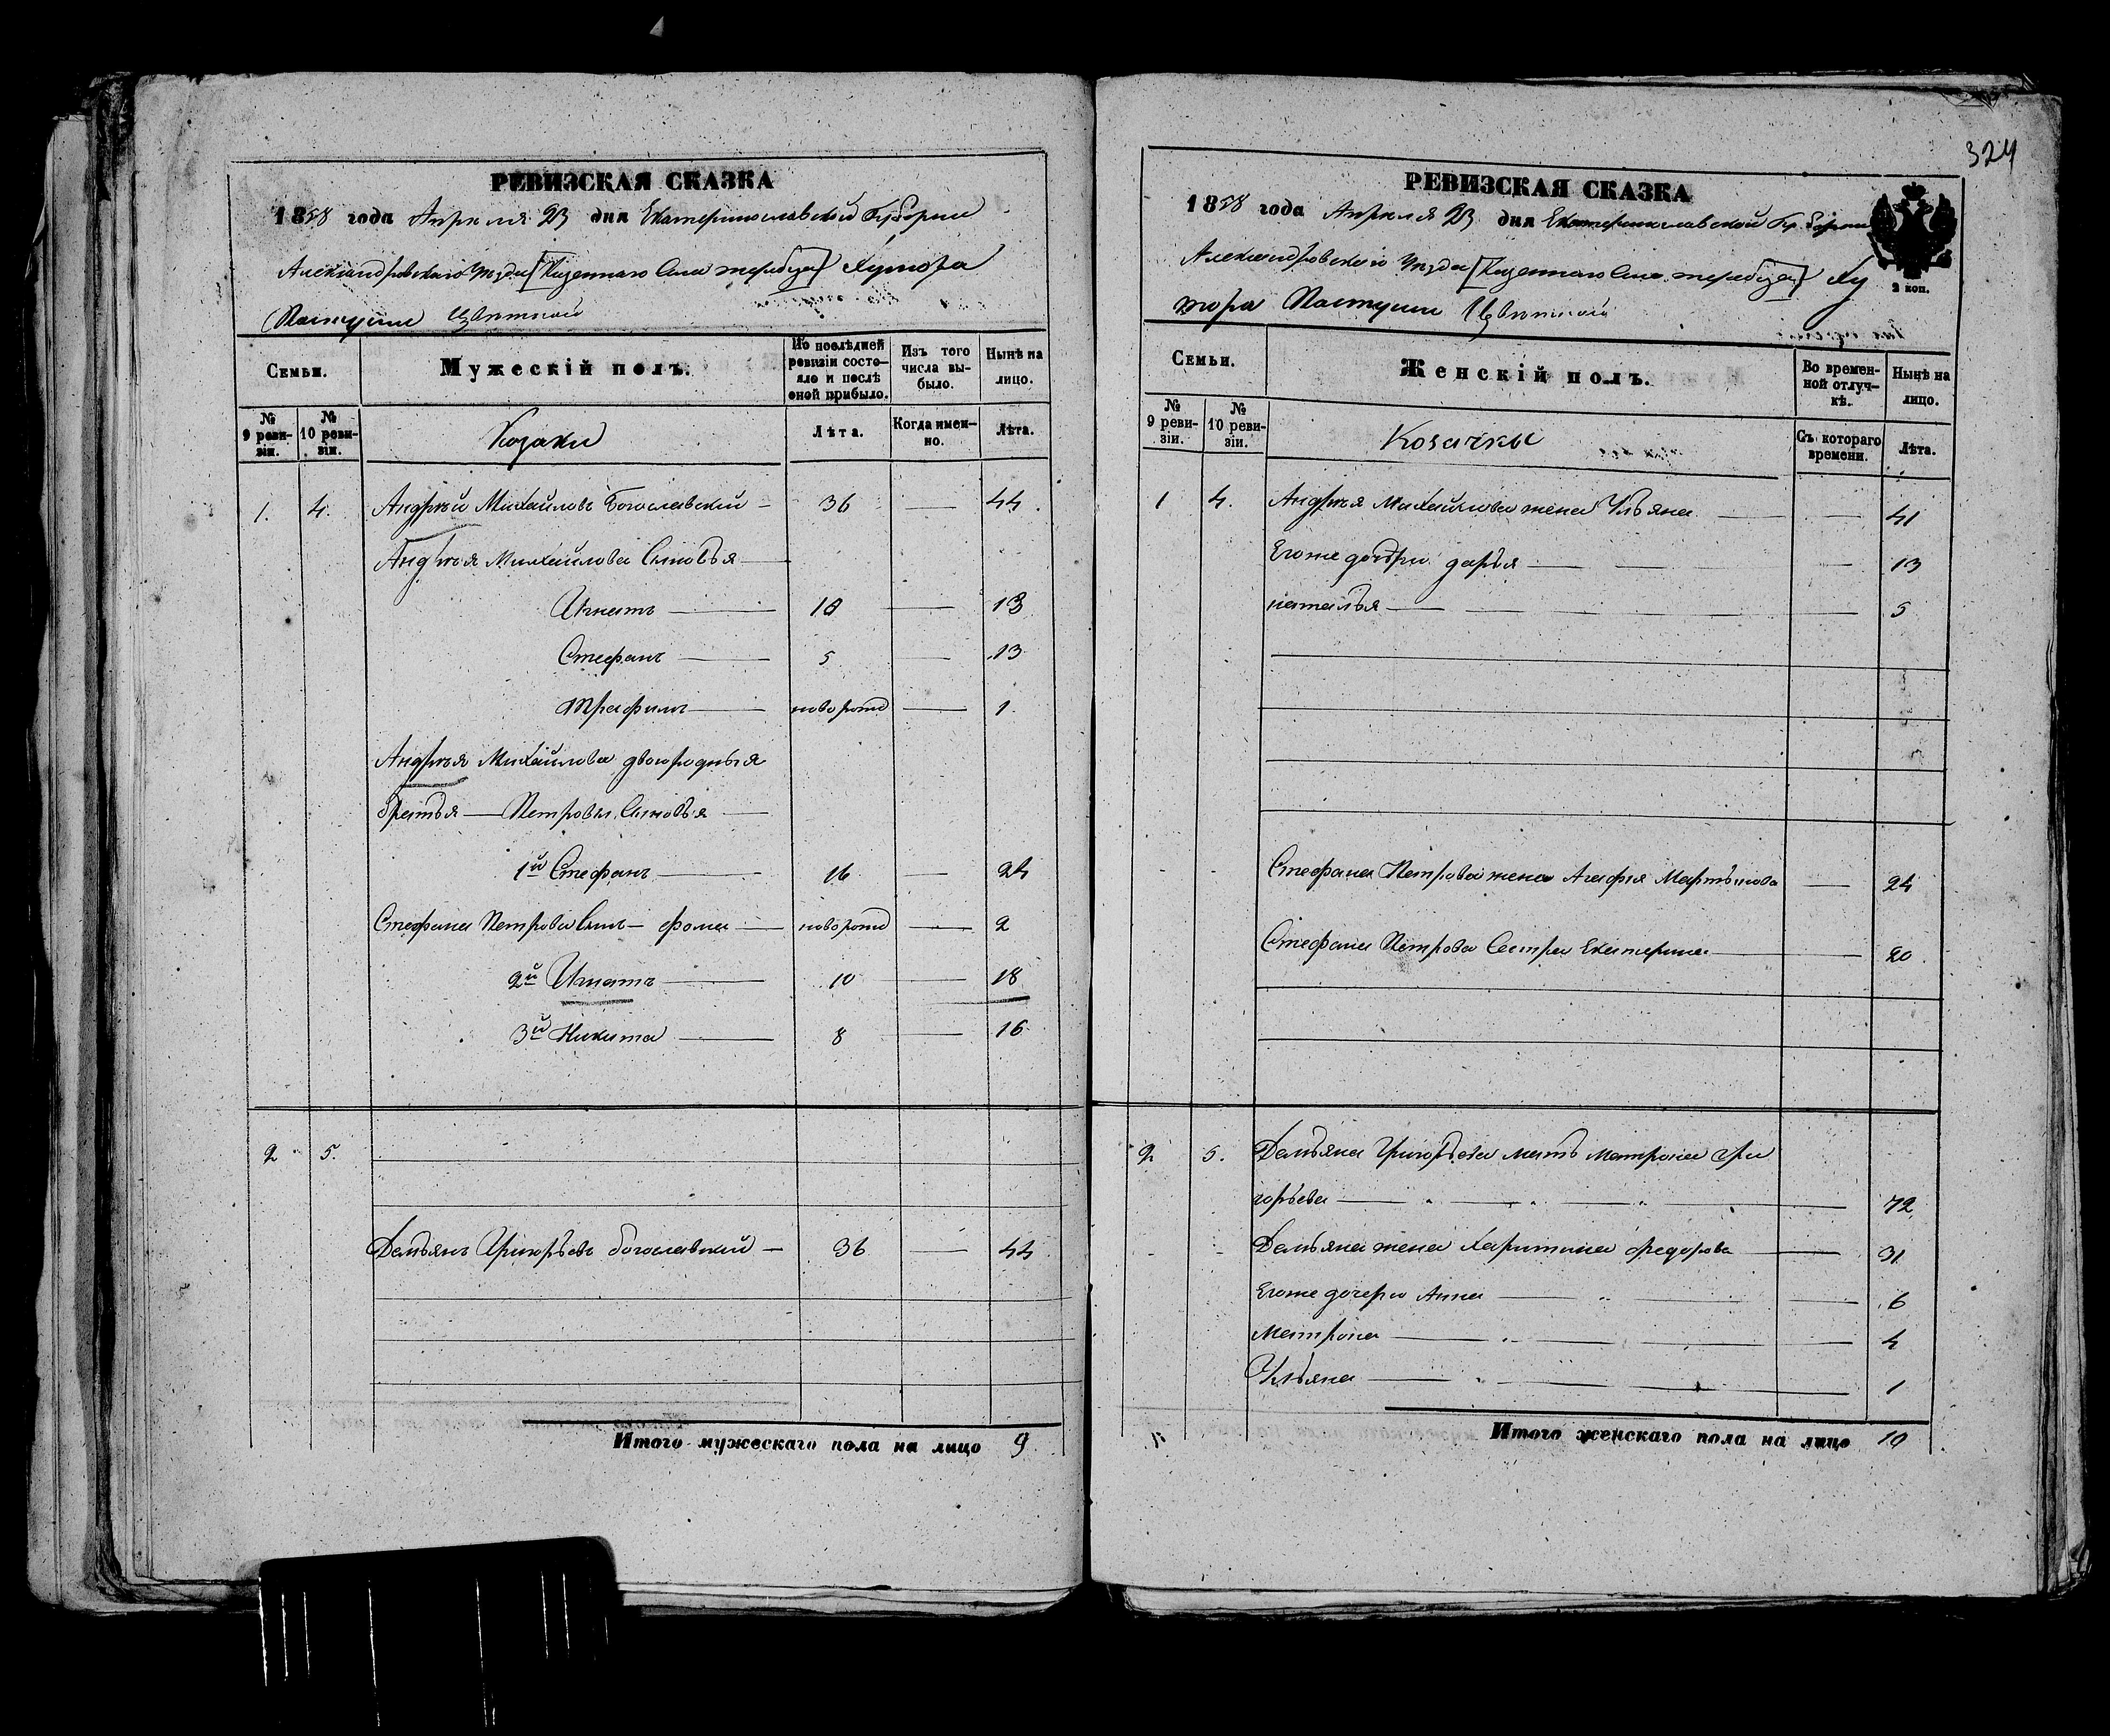 324
РЕВИЗСКАЯ СКАЗКА
1858 года Апреля 23 дня Екатеринославской Губернии
Александровскаго Уезда [Казеннаго Села Терабуза] Хутора
Пастушии Цветной
Семьи.
Мужескій полъ.
По послѣдней ревизіи состояло и послѣ оной прибыло.
Изъ того числа выбыло.
Нынѣ на лицо.
№ 9 ревизіи.
№ 10 ревизіи.
Козаки
Лѣта.
Когда именно.
Лѣта.
1. 4. Андрѣй Михайловъ Богославский — 36 — 44.
Андрѣя Михайлова Сыновья —
Игнатъ — 10 — 13
Стефанъ — 5 — 13
Трафимъ — новорожд — 1
Андрѣя Михайлова двоюродныя
братья — Петровы Сыновья —
1й Стефанъ — 16 — 24
Стефана Петрова Сынъ — фома — новорожд — 2
2й Игнатъ — 10 — 18
3й Никита — 8 — 16
2 5.
Демьянъ Григорьевъ богославский — 36 — 44
Итого мужескаго пола на лицо 9
РЕВИЗСКАЯ СКАЗКА
1858 года Апреля 23 дня Екатеринославской Губернии
2 коп.
Александровскаго Уезда [Казеннаго Села Терабуза] Ху
тора Пастушии Цветной
Семьи.
Женскій полъ.
Во временной отлучкѣ.
Нынѣ на лицо.
№ 9 ревизіи.
№ 10 ревизіи.
Козачки
Съ котораго времени.
Лѣта.
1 4. Андрѣя Михайлова жена Ульяна — 41
Егоже дочери дарья — 13
наталья — 5
Стефана Петрова жена Агафия Мартынова — 24
Стефана Петрова Сестра Екатерина — 20
2 5. Демьяна Григорьева мать матрона гри
горьева — 72
Демьяна жена Харитина федорова — 31
Егоже дочери Анна — 6
Матрона — 4
Ульяна — 1
Итого женскаго пола на лицо 10